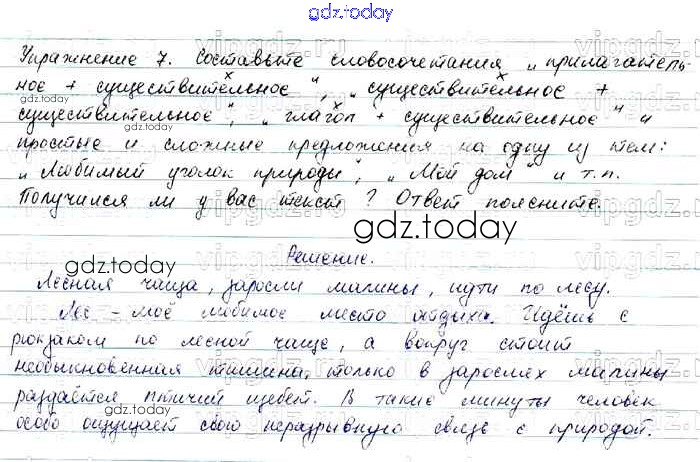 gdz.today
Упражнение 7. Составьте словосочетания „прилагатель-
ное + существительное“, „существительное +
gdz.today
существительное“, „глагол + существительное“ и
gdz.today
простые и сложные предложения на одну из тем:
„Любимый уголок природы“, „Мой дом“ и т.п.
Получился ли у вас текст? Ответ поясните.
gdz.today
gdz.today
Решение.
Лесная чаща, заросли малины, идти по лесу.
Лес – моё любимое место отдыха. Идёшь с
рюкзаком по лесной чаще, а вокруг стоит
необыкновенная тишина, только в зарослях малины
раздаётся птичий щебет. В такие минуты человек
gdz.today
особо ощущает свою неразрывную связь с природой.